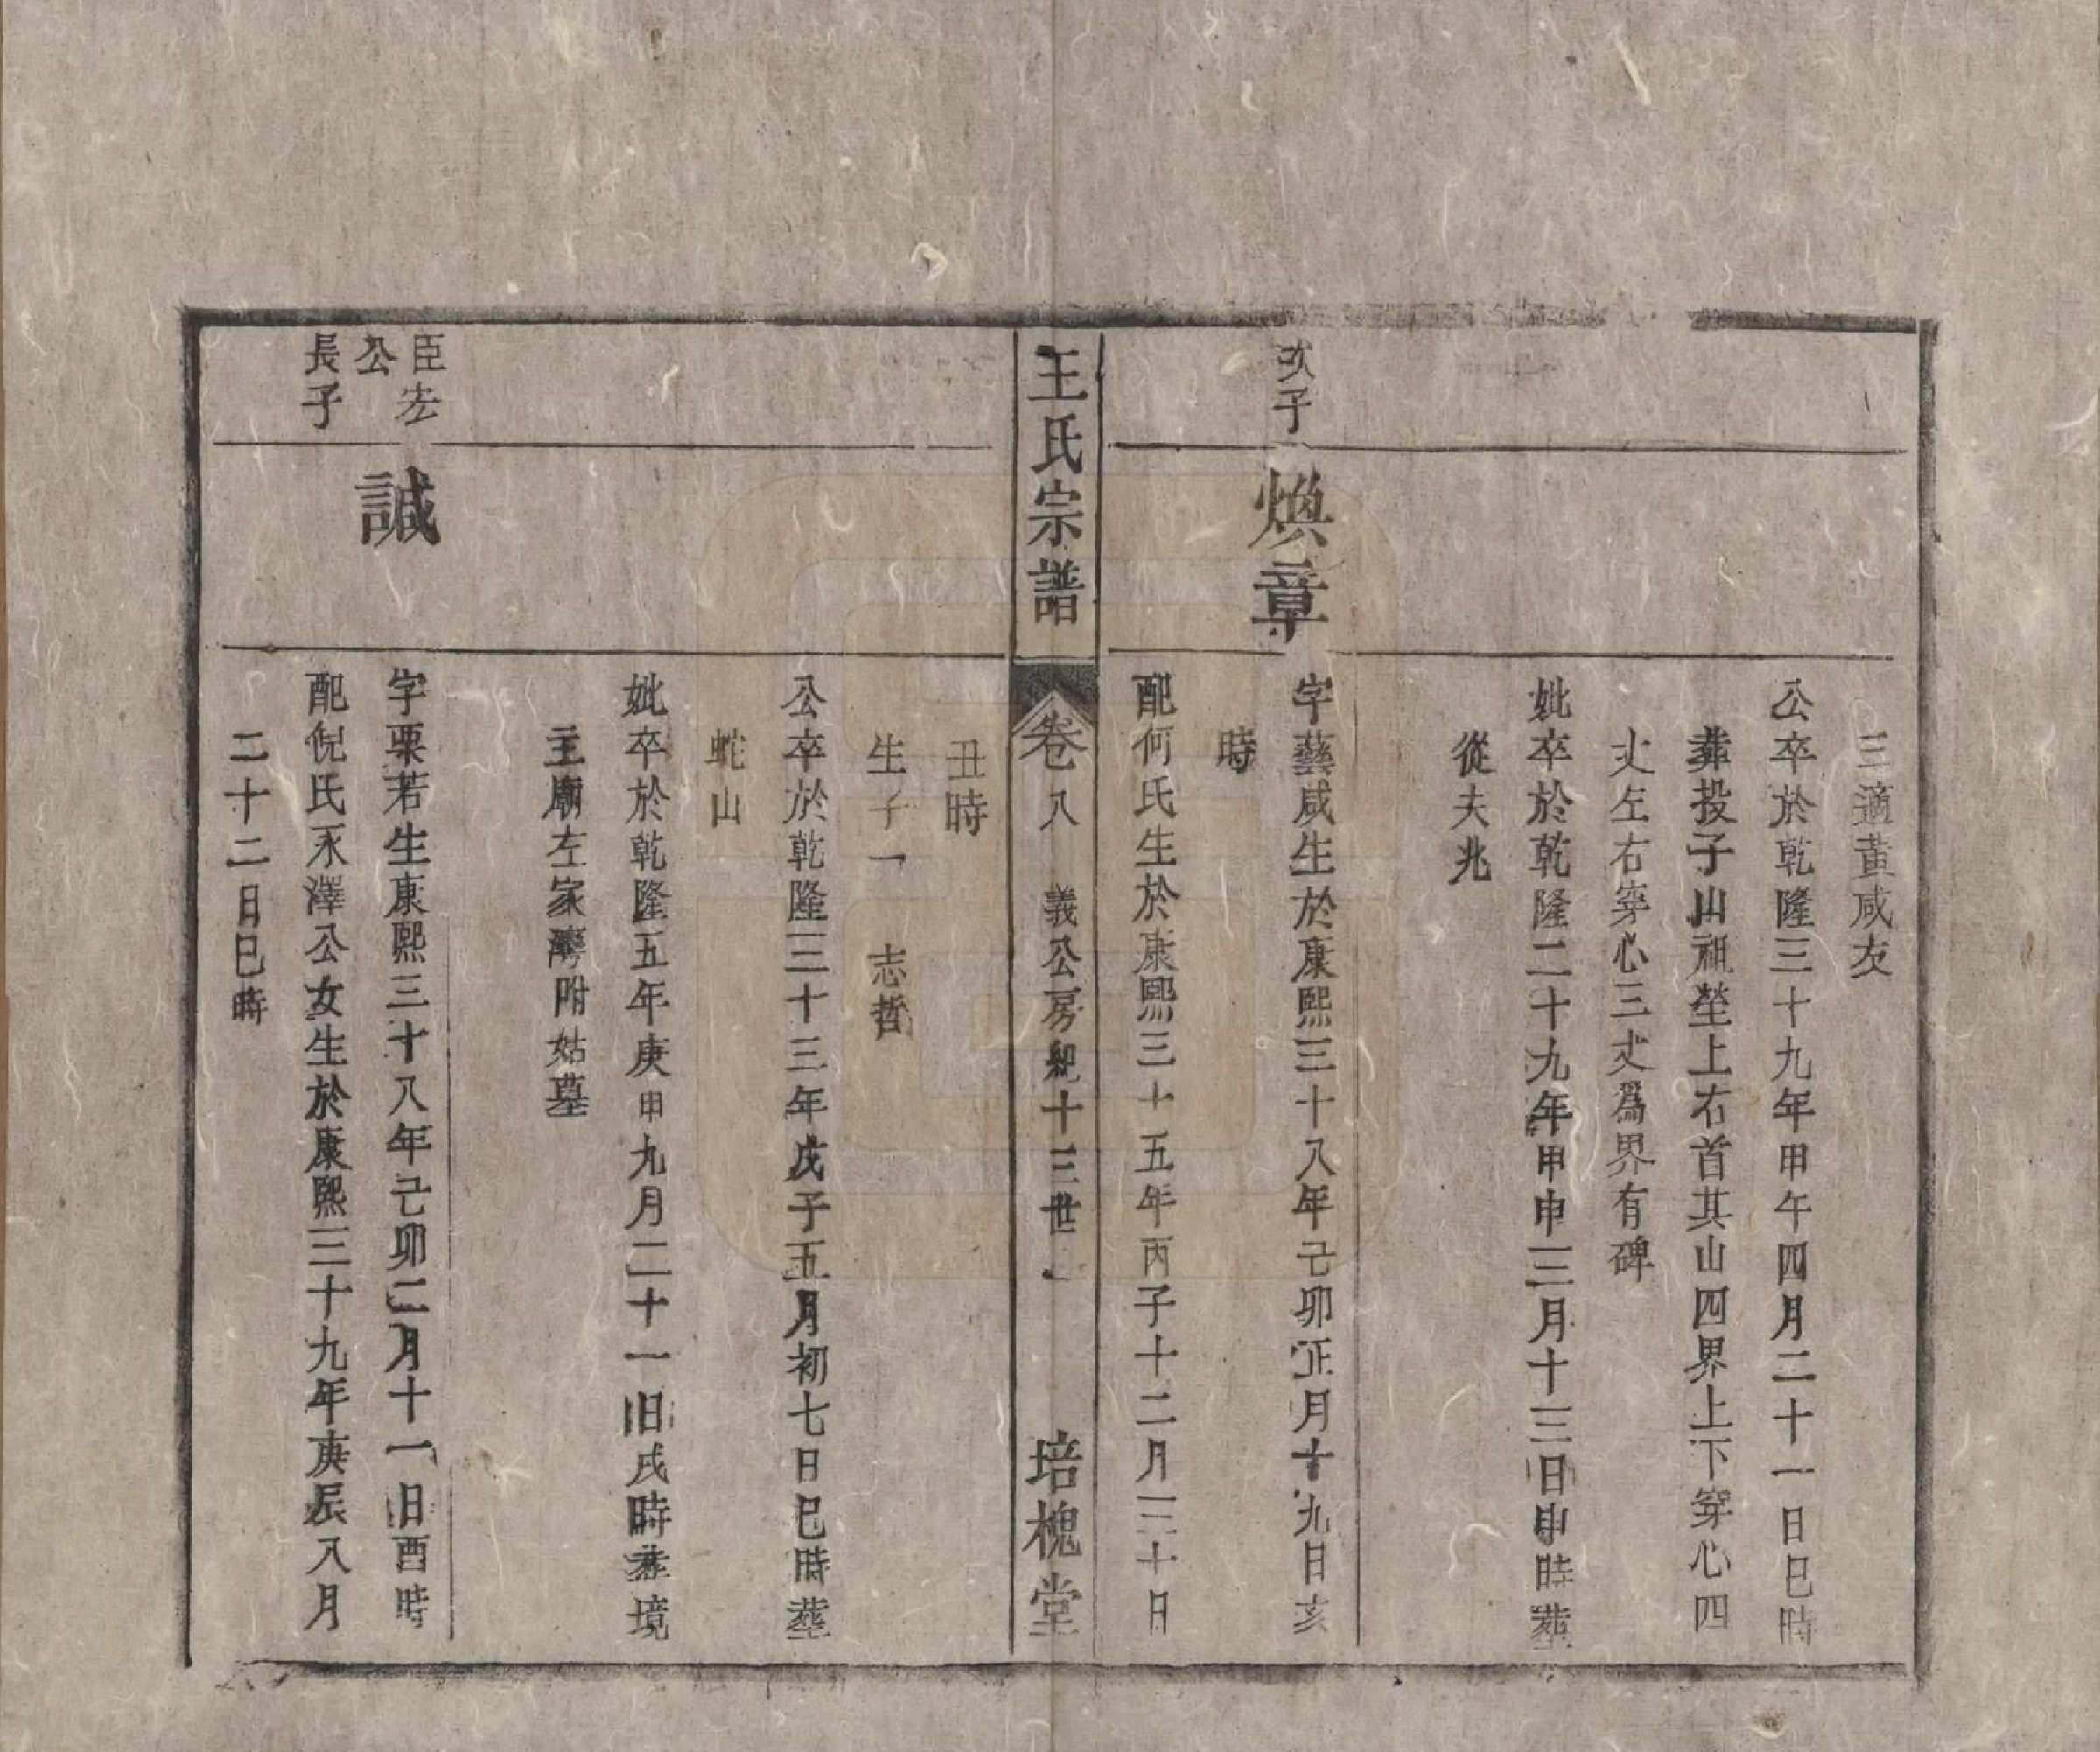 三適黃咸友
公卒於乾隆三十九年甲午四月二十一日巳時
葬投子山祖塋上右首其山四界上下穿心四
丈左右穿心三丈爲界有碑
妣卒於乾隆二十九年甲申三月十三日申時葬
從夫兆
次子
煥章
字藝咸生於康熙三十八年己卯正月十九日亥
時
配何氏生於康熙三十五年丙子十二月三十日
王氏宗譜
卷八 義公房紀十三世
培槐堂
丑時
生子一 志哲
公卒於乾隆三十三年戊子五月初七日巳時葬
蛇山
妣卒於乾隆五年庚申九月二十一日戌時葬境
主廟左家灣附姑墓
臣宏
公
長子
誠
字栗若生康熙三十八年己卯二月十一日酉時
配倪氏永澤公女生於康熙三十九年庚辰八月
二十二日巳時